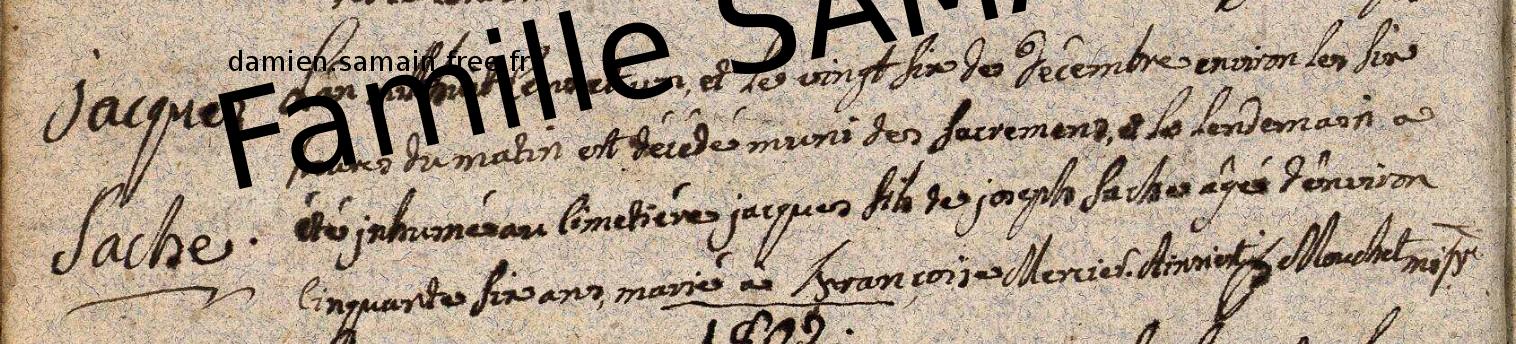 damien.samain.free.fr
Famille SAMA
jacques
Sache.
L'an mil huit cent et un, et le vingt six de decembre environ les six
heures du matin est décédé muni des sacremens, et le lendemain a
été jnhumé au Cimetiére jacques fils de joseph Sache âgé d'environ
Cinquante six ans, marié à Françoise Mercier. Mouchet
1802.